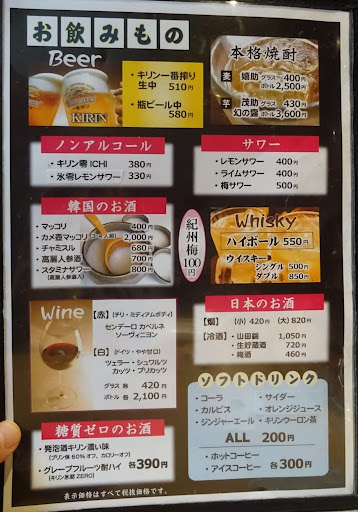 お飲みもの
Beer
KIRIN
・キリン一番搾り
生中 510円
・瓶ビール中
580円
本格焼酎
麦 嬉助 グラス 400円
ボトル 2,500円
芋 茂助 グラス 430円
幻の露 ボトル 3,600円
ノンアルコール
・キリン零 ICHI 380円
・氷零レモンサワー 330円
サワー
・レモンサワー 400円
・ライムサワー 400円
・梅サワー 500円
韓国のお酒
・マッコリ 400円
・カメ壺マッコリ(3、4人前) 2,000円
・チャミスル 680円
・高麗人参酒 700円
・スタミナサワー 800円
(高麗人参酒入)
紀州梅100円
Whisky
ハイボール 550円
ウイスキー
シングル 500円
ダブル 850円
Wine
【赤】(チリ・ミディアムボディ)
センデーロ カベルネ
ソーヴィニヨン
【白】(ドイツ・やや甘口)
ツェラー・シュワルツ
カッツ・プリカッツ
グラス 各 420円
ボトル 各 2,100円
日本のお酒
【燗】 (小) 420円 (大) 820円
【冷酒】・山田錦 1,050円
・生貯蔵酒 720円
・梅酒 460円
ソフトドリンク
・コーラ ・サイダー
・カルピス ・オレンジジュース
・ジンジャーエール ・キリンウーロン茶
ALL 200円
・ホットコーヒー
・アイスコーヒー 各300円
糖質ゼロのお酒
・発泡酒キリン濃い味
(プリン体 60%オフ、カロリーオフ)
・グレープフルーツ酎ハイ 各390円
(キリン氷結 ZERO)
表示価格はすべて税抜価格です。